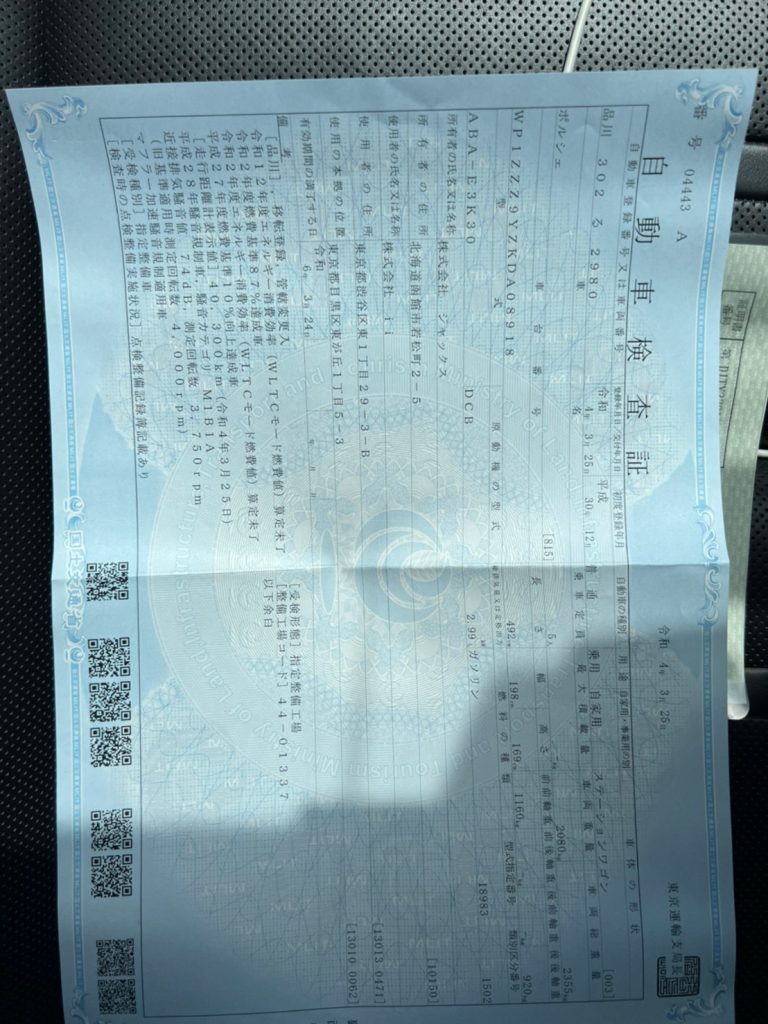 番号 04443 A
自動車検査証
令和 4年 3月 25日
東京運輸支局長
自動車登録番号又は車両番号 登録年月日/交付年月日 初度登録年月 自動車の種別 用途 自家用・事業用の別 車体の形状
品川 302 る 2980 令和 4年 3月 25日 平成 30年 12月 普通 乗用 自家用 ステーションワゴン [003]
車名 乗車定員 最大積載量 車両重量 車両総重量
ポルシェ [815] 5人 2080kg 2355kg
車台番号 長さ 幅 高さ 前前軸重 前後軸重 後前軸重 後後軸重
WP1ZZZ9YZKDA08918 492cm 198cm 169cm 1160kg 920kg
型式 原動機の型式 総排気量又は定格出力 燃料の種類 型式指定番号 類別区分番号
ABA-E3K30 DCB 2.99 ガソリン 18983 1502
所有者の氏名又は名称 株式会社 ジャックス
所有者の住所 北海道函館市若松町2-5 [10150]
使用者の氏名又は名称 株式会社 ii
使用者の住所 東京都渋谷区東1丁目29-3-B [13013 0471]
使用の本拠の位置 東京都目黒区東が丘1丁目5-3 [13010 0062]
有効期間の満了する日 令和 6年 3月 24日
備考
[品川], 移転登録, 管轄変更入
令和12年度エネルギー消費効率(WLTCモード燃費値)算定未了
令和2年度燃費基準87%達成車
令和2年度エネルギー消費効率(WLTCモード燃費値)算定未了
平成27年度燃費基準10%向上達成車
[走行距離計表示値]40,300km(令和4年3月25日)
平成28年騒音規制車, 騒音カテゴリM1B1A
近接排気騒音値 74dB, 測定回転数 3,750rpm
(旧基準適用時測定回転数 4,000rpm)
マフラー加速騒音規制適用車
[受検種別]指定整備車
[検査時の点検整備実施状況]点検整備記録簿記載あり
[受検形態]指定整備工場
[整備工場コード]44-01337
以下余白
国土交通省